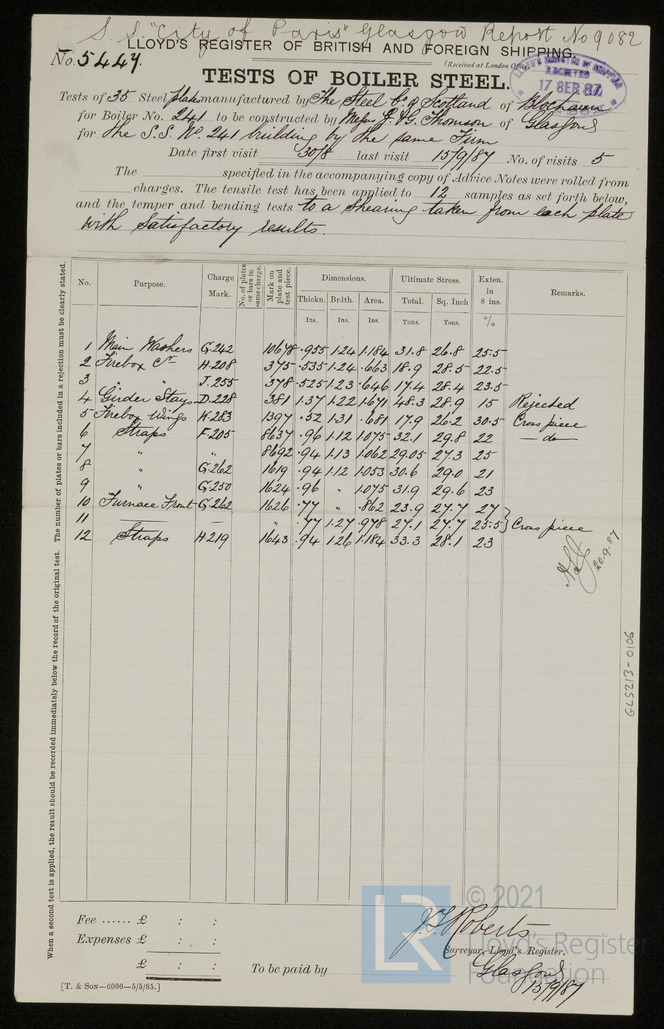 S.S. "City of Paris" Glasgow Report No 9082
LLOYD'S REGISTER OF BRITISH AND FOREIGN SHIPPING.
No. 5447.
(Received at London Office
17 SEP 87
TESTS OF BOILER STEEL.
Tests of 35 Steel plates manufactured by The Steel Co. of Scotland of Blochairn
for Boiler No. 241 to be constructed by Messrs J. & G. Thomson of Glasgow
for the S.S. No. 241 building by the same Firm
Date first visit 30/8 last visit 15/9/87 No. of visits 5
The specified in the accompanying copy of Advice Notes were rolled from
charges. The tensile test has been applied to 12 samples as set forth below,
and the temper and bending tests to a shearing taken from each plate
with satisfactory results.
No. Purpose. Charge Mark. No. of plates or bars in same charge. Mark on plate and test piece. Dimensions. Ultimate Stress. Exten. in 8 ins. Remarks.
Thickn. Br.lth. Area. Total. Sq. Inch
Ins. Ins. Ins. Tons. Tons. %
1 Main Washers G.242 10678 .955 1.24 1.184 31.8 26.8 25.5
2 Firebox Cr H.208 375 .535 1.24 .663 18.9 28.5 22.5
3 " J.255 378 .525 1.23 .646 17.4 28.4 23.5
4 Girder Stays D.228 381 1.37 1.22 1.671 48.3 28.9 15 Rejected
5 Firebox Wings K.283 1397 .52 1.31 .681 17.9 26.2 30.5 Cross piece
6 Straps F.205 8637 .96 1.12 1.075 32.1 29.8 22 — do —
7 " " 8692 .94 1.13 1.062 29.05 27.3 25
8 " G.262 1619 .94 1.12 1.053 30.6 29.0 21
9 " G.250 1624 .96 " 1.075 31.9 29.6 23
10 Furnace Front G.262 1626 .77 " .862 23.9 27.7 27
11 " .77 1.27 .978 27.1 27.7 23.5 Cross piece
12 Straps H.219 1643 .94 1.26 1.184 33.3 28.1 23
20.9.87
GLS213-0106
The number of plates or bars included in a rejection must be clearly stated.
When a second test is applied, the result should be recorded immediately below the record of the original test.
Fee ...... £ : :
Expenses £ : :
£ : :
To be paid by
J.T. Roberts
Surveyor, Lloyd's Register.
Glasgow
15/9/87
[T. & SON—6000—5/5/85.]
LR
© 2021
Lloyd's Register
Foundation